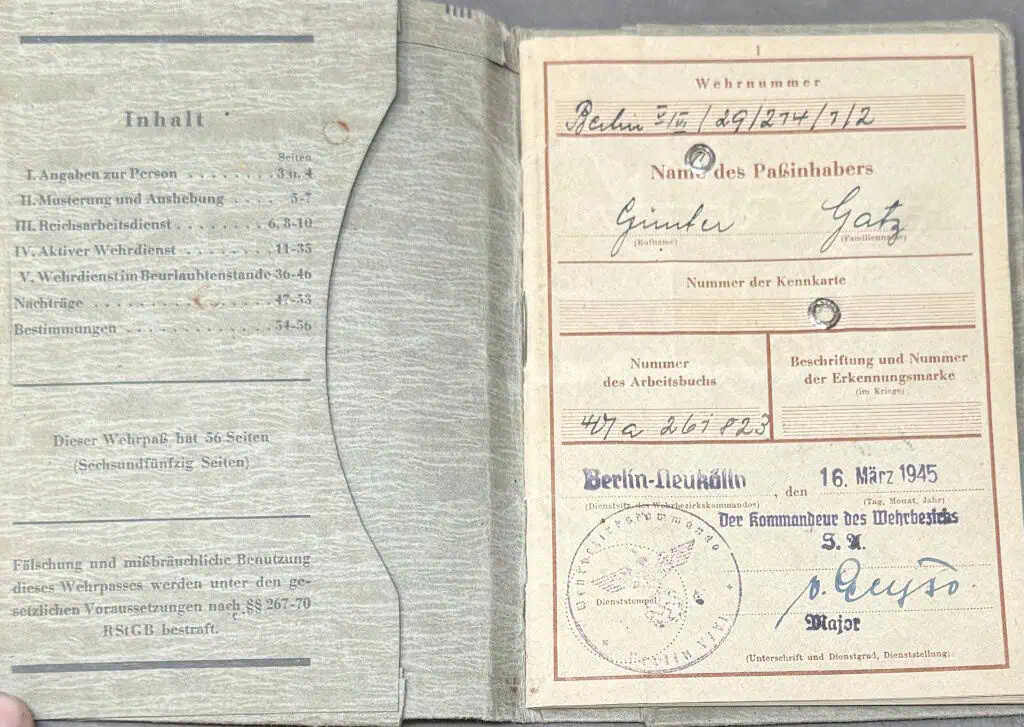 Inhalt
Seiten
I. Angaben zur Person . . . . . . . . 3 u. 4
II. Musterung und Aushebung . . . . 5-7
III. Reichsarbeitsdienst . . . . . . . . 6, 8-10
IV. Aktiver Wehrdienst . . . . . . . . 11-35
V. Wehrdienst im Beurlaubtenstande 36-46
Nachträge . . . . . . . . . . . . . . 47-53
Bestimmungen . . . . . . . . . . . . 54-56
Dieser Wehrpaß hat 56 Seiten
(Sechsundfünfzig Seiten)
Fälschung und mißbräuchliche Benutzung
dieses Wehrpasses werden unter den ge-
setzlichen Voraussetzungen nach §§ 267-70
RStGB bestraft.
1
Wehrnummer
Berlin V/VI / 29/214/1/2
Name des Paßinhabers
Günter Gatz
(Rufname) (Familienname)
Nummer der Kennkarte
Nummer
des Arbeitsbuchs
Beschriftung und Nummer
der Erkennungsmarke
(im Kriege)
a 261823
Berlin-Neukölln, den 16. März 1945
(Dienstsitz des Wehrbezirkskommandos) (Tag, Monat, Jahr)
Der Kommandeur des Wehrbezirks
Dienststempel
Berlin
Major
(Unterschrift und Dienstgrad, Dienststellung)